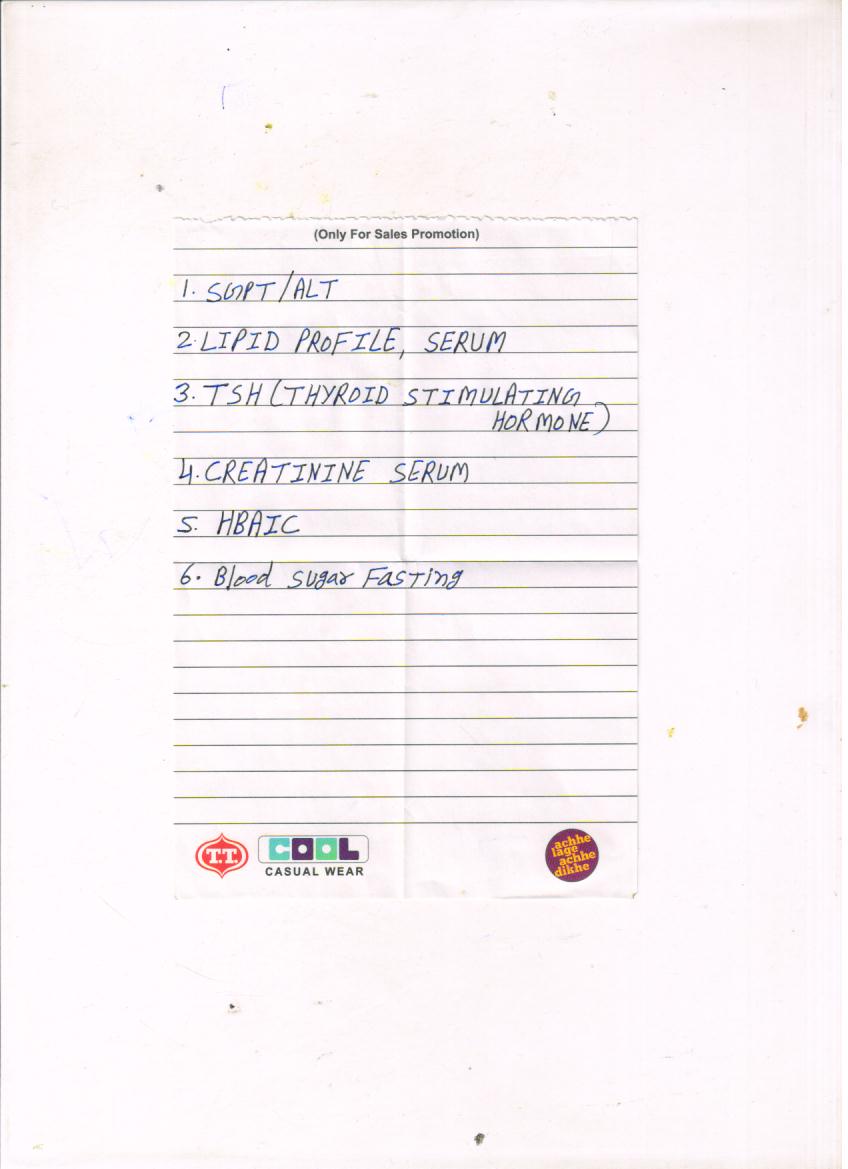 (Only For Sales Promotion)
1. SGPT/ALT
2. LIPID PROFILE, SERUM
3. TSH (THYROID STIMULATING
HORMONE)
4. CREATININE SERUM
5. HBAIC
6. Blood sugar Fasting
T.T.
COOL
CASUAL WEAR
achhe
lage
achhe
dikhe